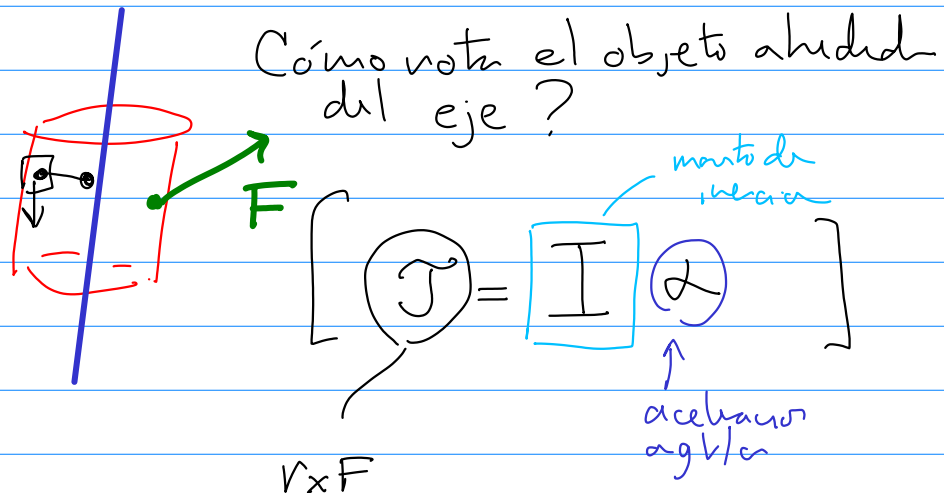 Cómo nota el objeto alrededor
del eje?
momento de
inercia
F
[ τ = I α ]
aceleracion
angular
r x F